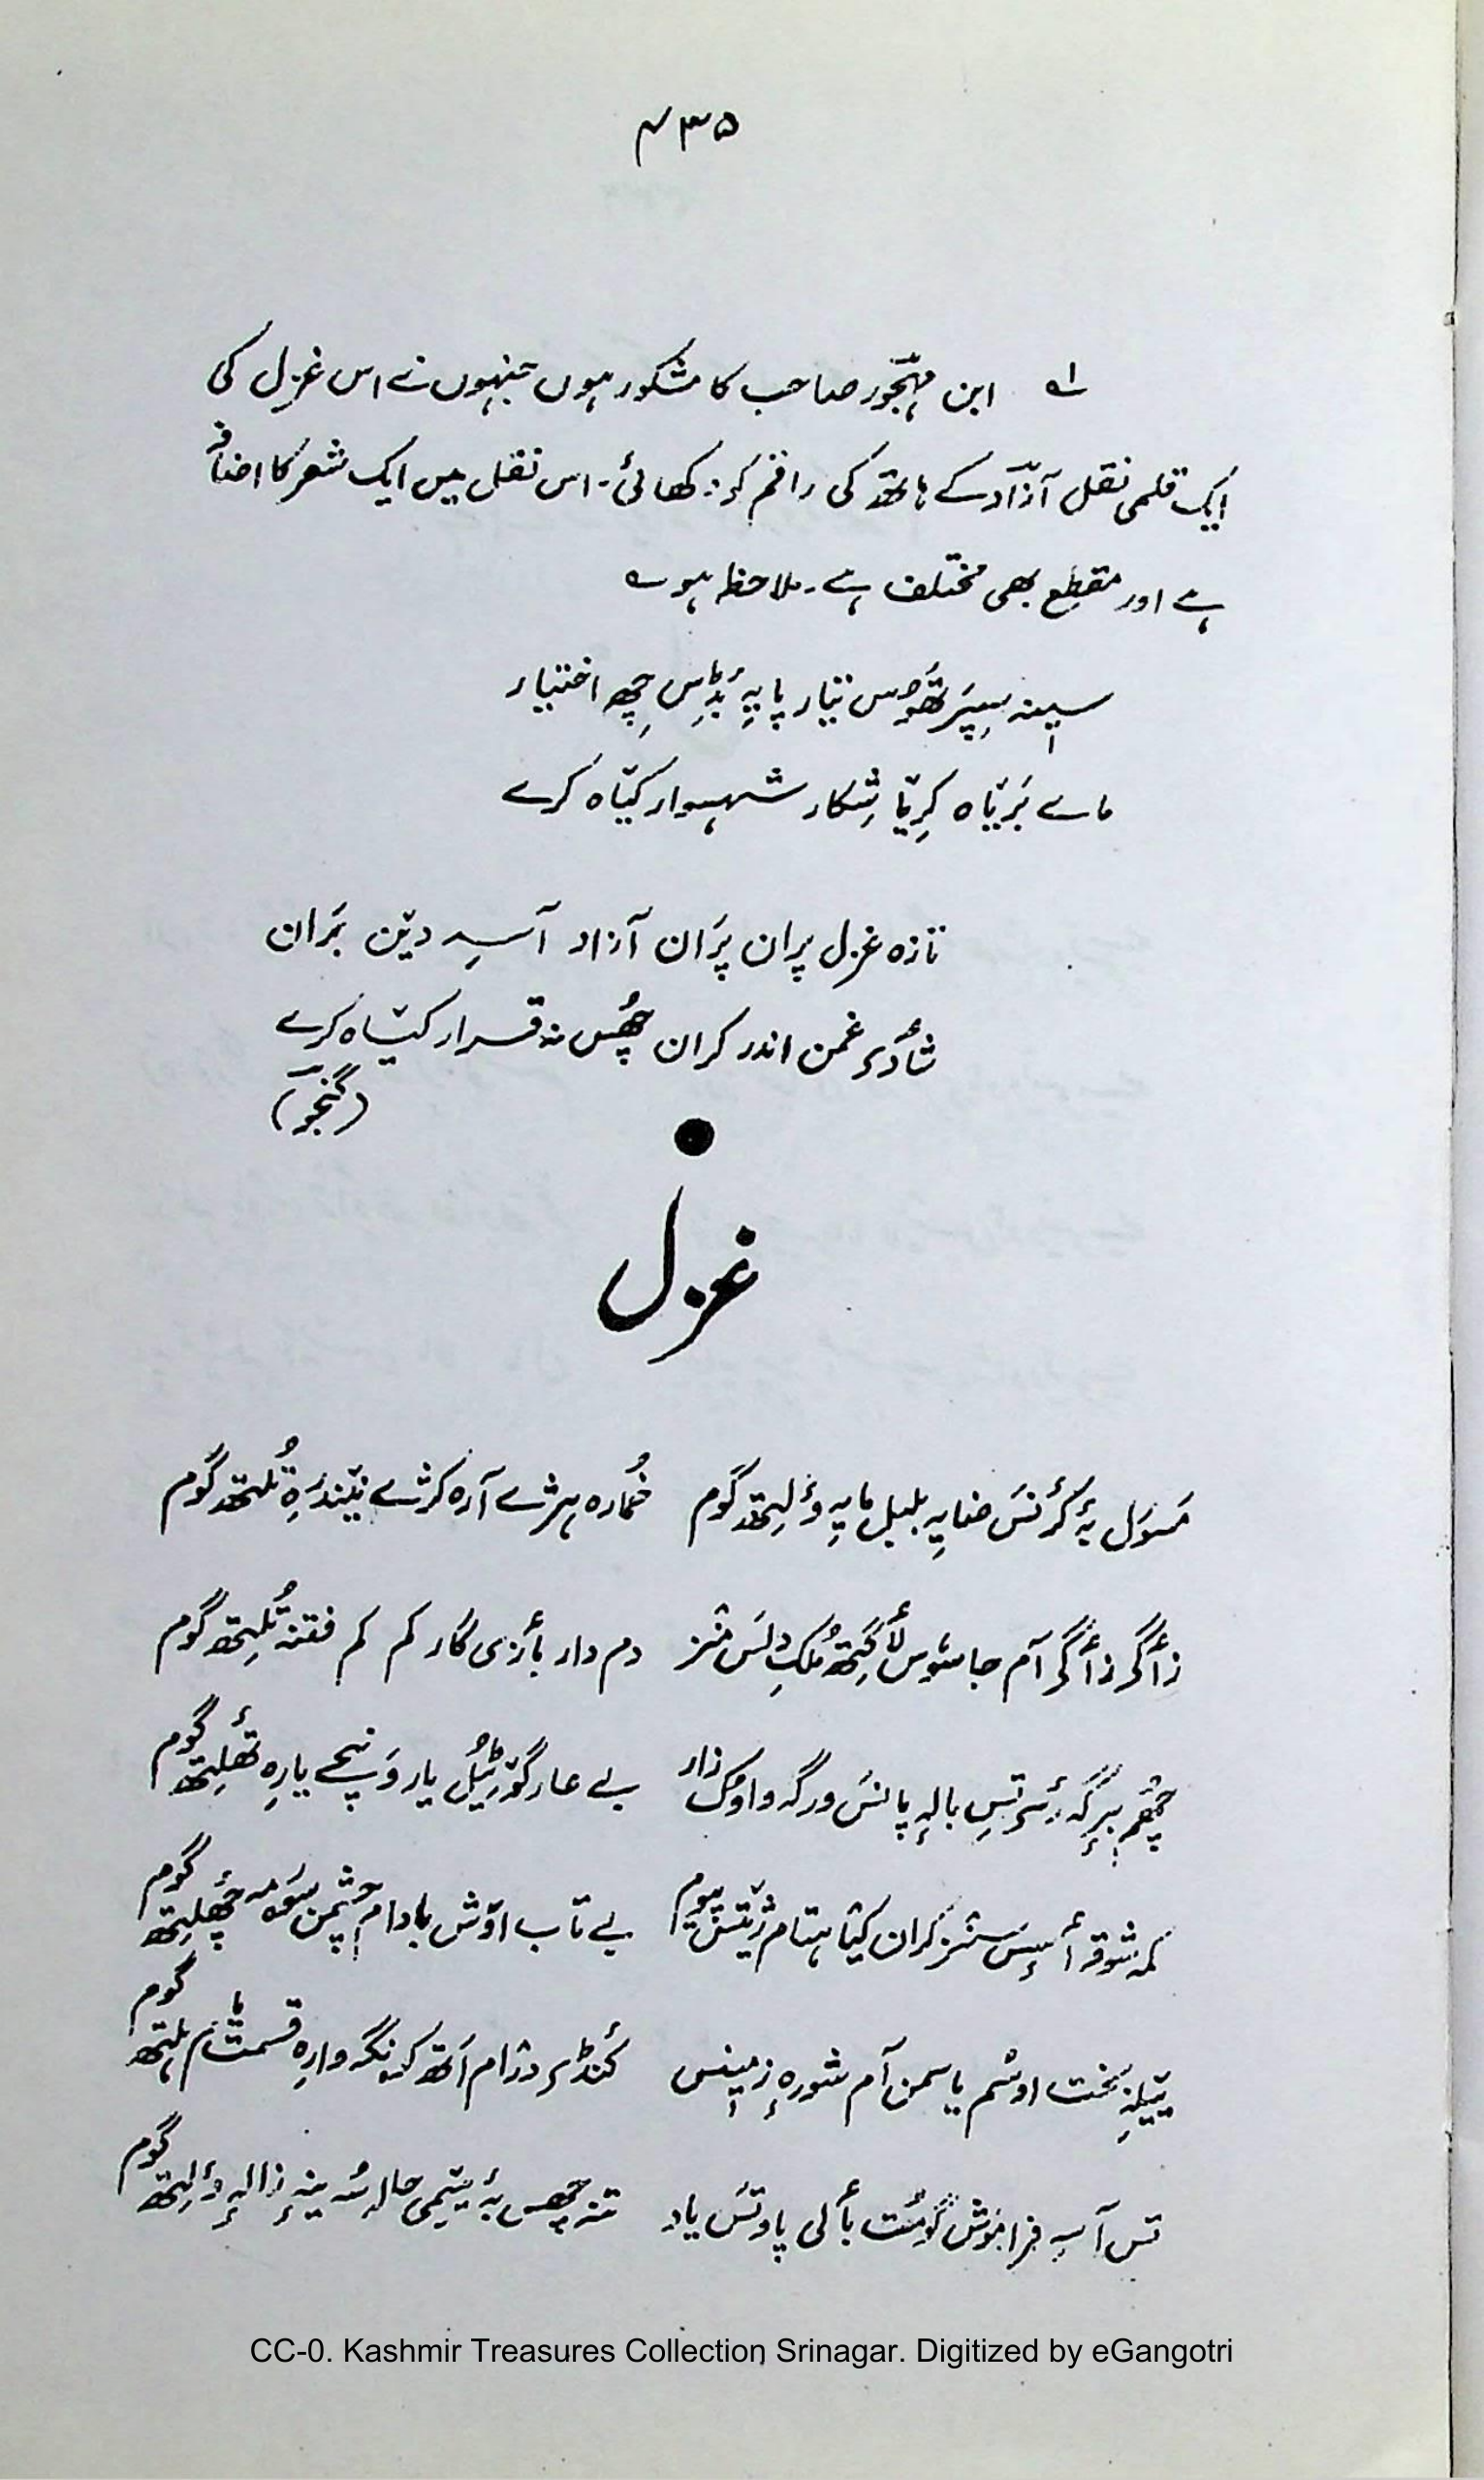 ۴۳۵
؎۱ ابن مہجورؔ صاحب کا مشکور ہوں جنہوں نے اس غزل کی
ایک قلمی نقل آزادؔ کے ہاتھ کی راقم کو دکھائی۔ اس نقل میں ایک شعر کا اضافہ
ہے اور مقطع بھی مختلف ہے۔ ملاحظہ ہو ؎
سینہ سپر تھوٚومس تیار پایہِ بٔڈِس چِھ اختیار
مارے بَریاہ کرِیا شِکار شہسوار کیٛاہ کرے
تازہ غزل پران پَران آزاد آسہِ دیٚن بَران
شٲدی غمن اندر کران چھُس نہ قرار کیٛاہ کرے
(گنجوؔ)
غزل
مَسوَل بہٕ کٔرنَس ضایہِ بلبل مایہِ وٕلِتھ گوم خُمارہ ہژے آرہ کژے نیٚندرِ تُلتھ گوم
زٲگر زٲگر آم جاسوس لٲگِتھ مُلکِ دِلَس منز دم دار بٲزی گار کم کم فتنہ تُلِتھ گوم
بالہِ پانَس ورگہ واوُک زار بے عار گوٚو یار یارہِ تھٔلِتھ گوم
کمہ شوقہ ٲسِس کران کیٛا ہتام پیوم بے تاب اوٚش بادام چشمن چھٔلِتھ گوم
بخت یاسمن آم شورہِ زمینس کٔنڈی درٛام اَتھ کونگہ وارِ قسمت گوم
تس آسہِ فراموش گومُت بٲلی پاوتَس یاد تنہ چھس بہٕ یتٔمی حالہ زالہِ وٕلِتھ گوم
CC-0. Kashmir Treasures Collection Srinagar. Digitized by eGangotri